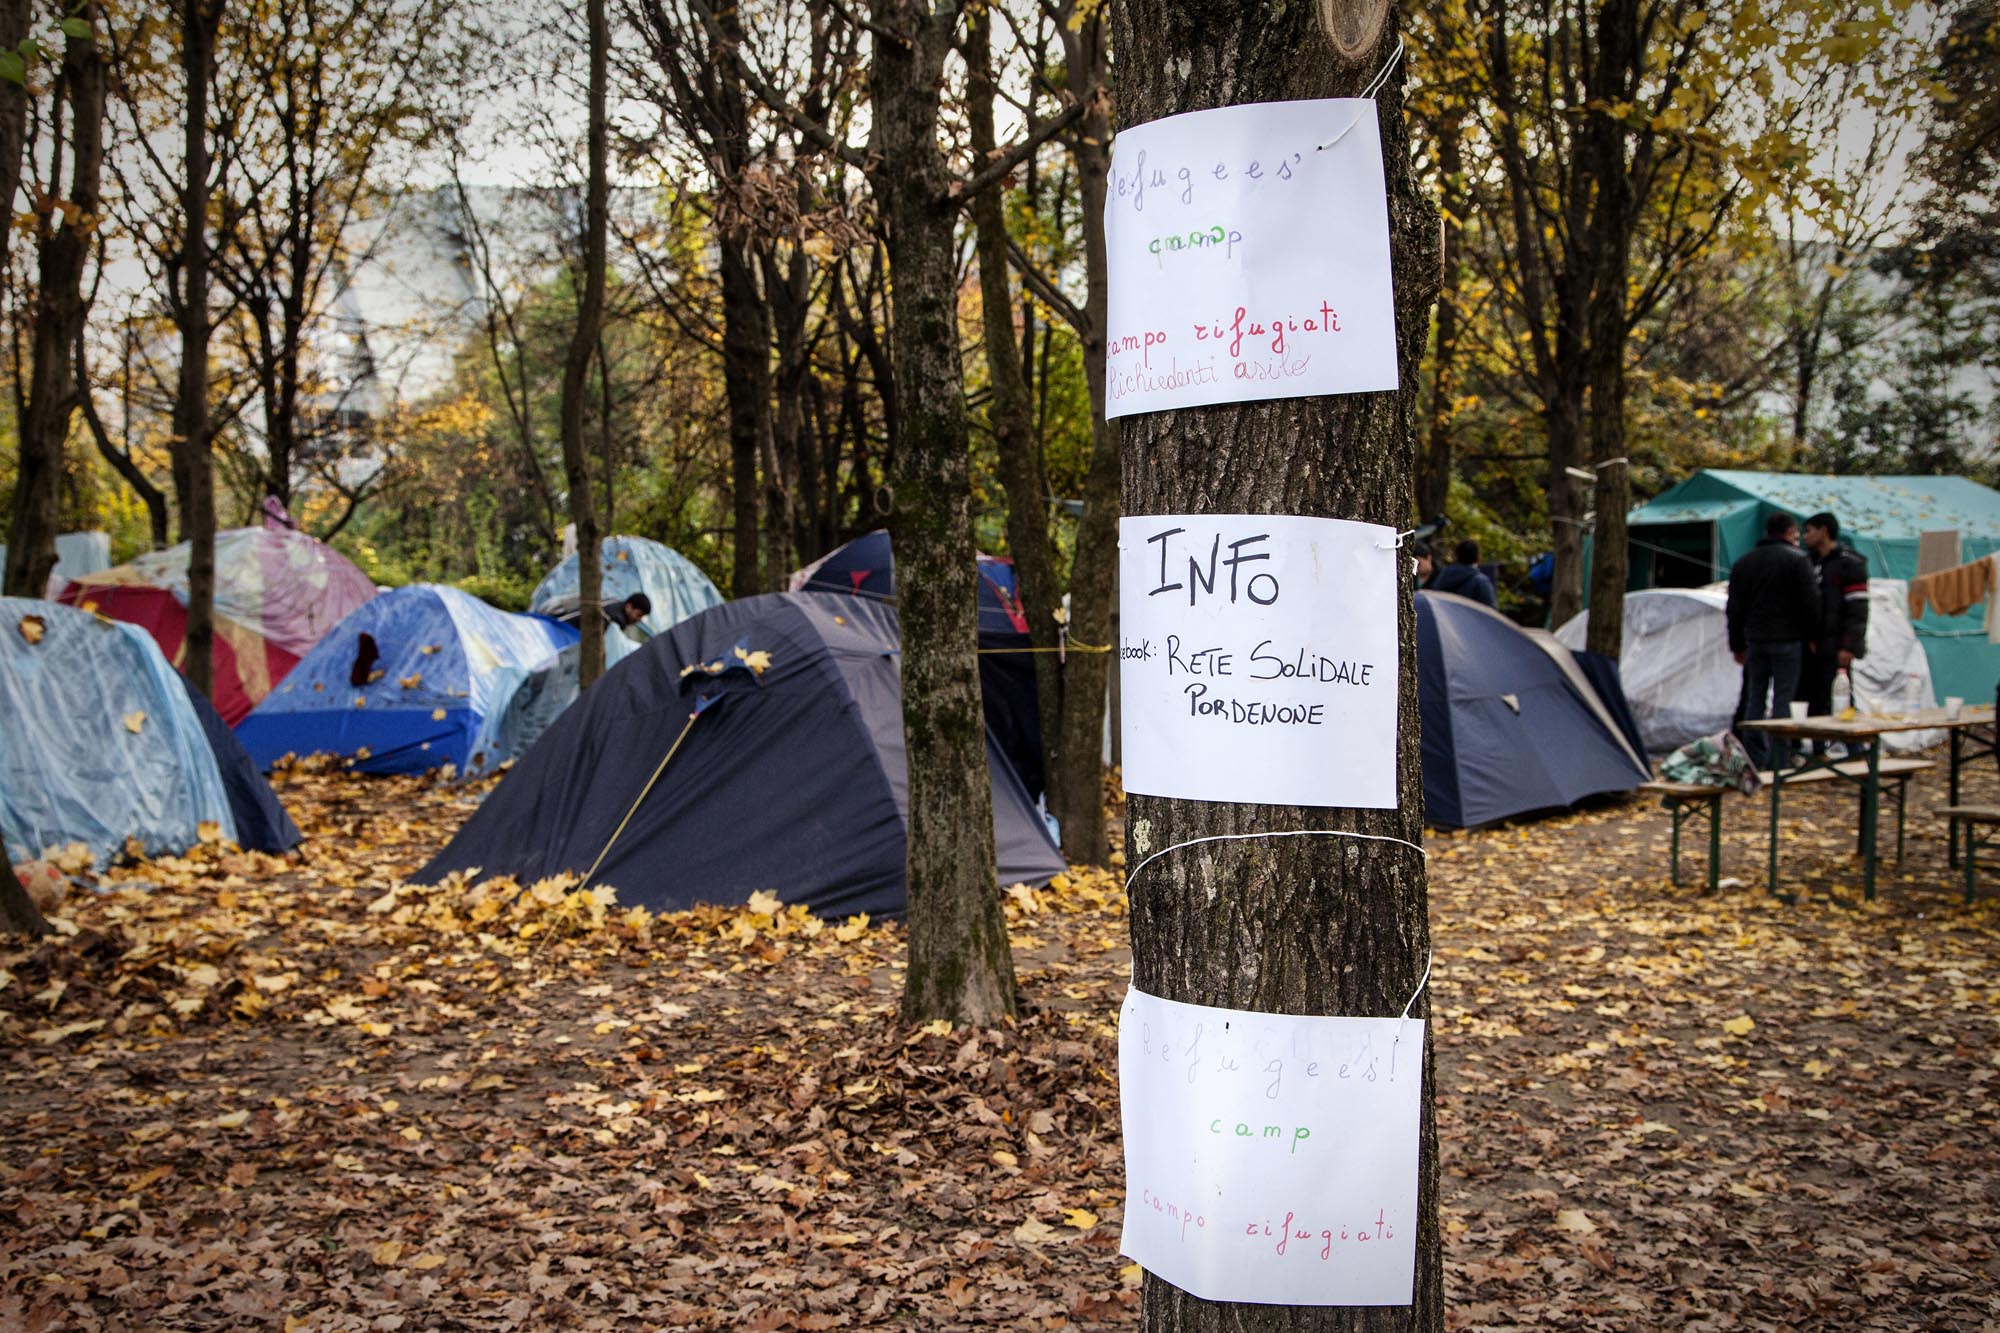 Refugees'
camp
campo rifugiati
Richiedenti asilo
INFO
cebook: RETE SOLIDALE
PORDENONE
Refugees!
camp
campo rifugiati